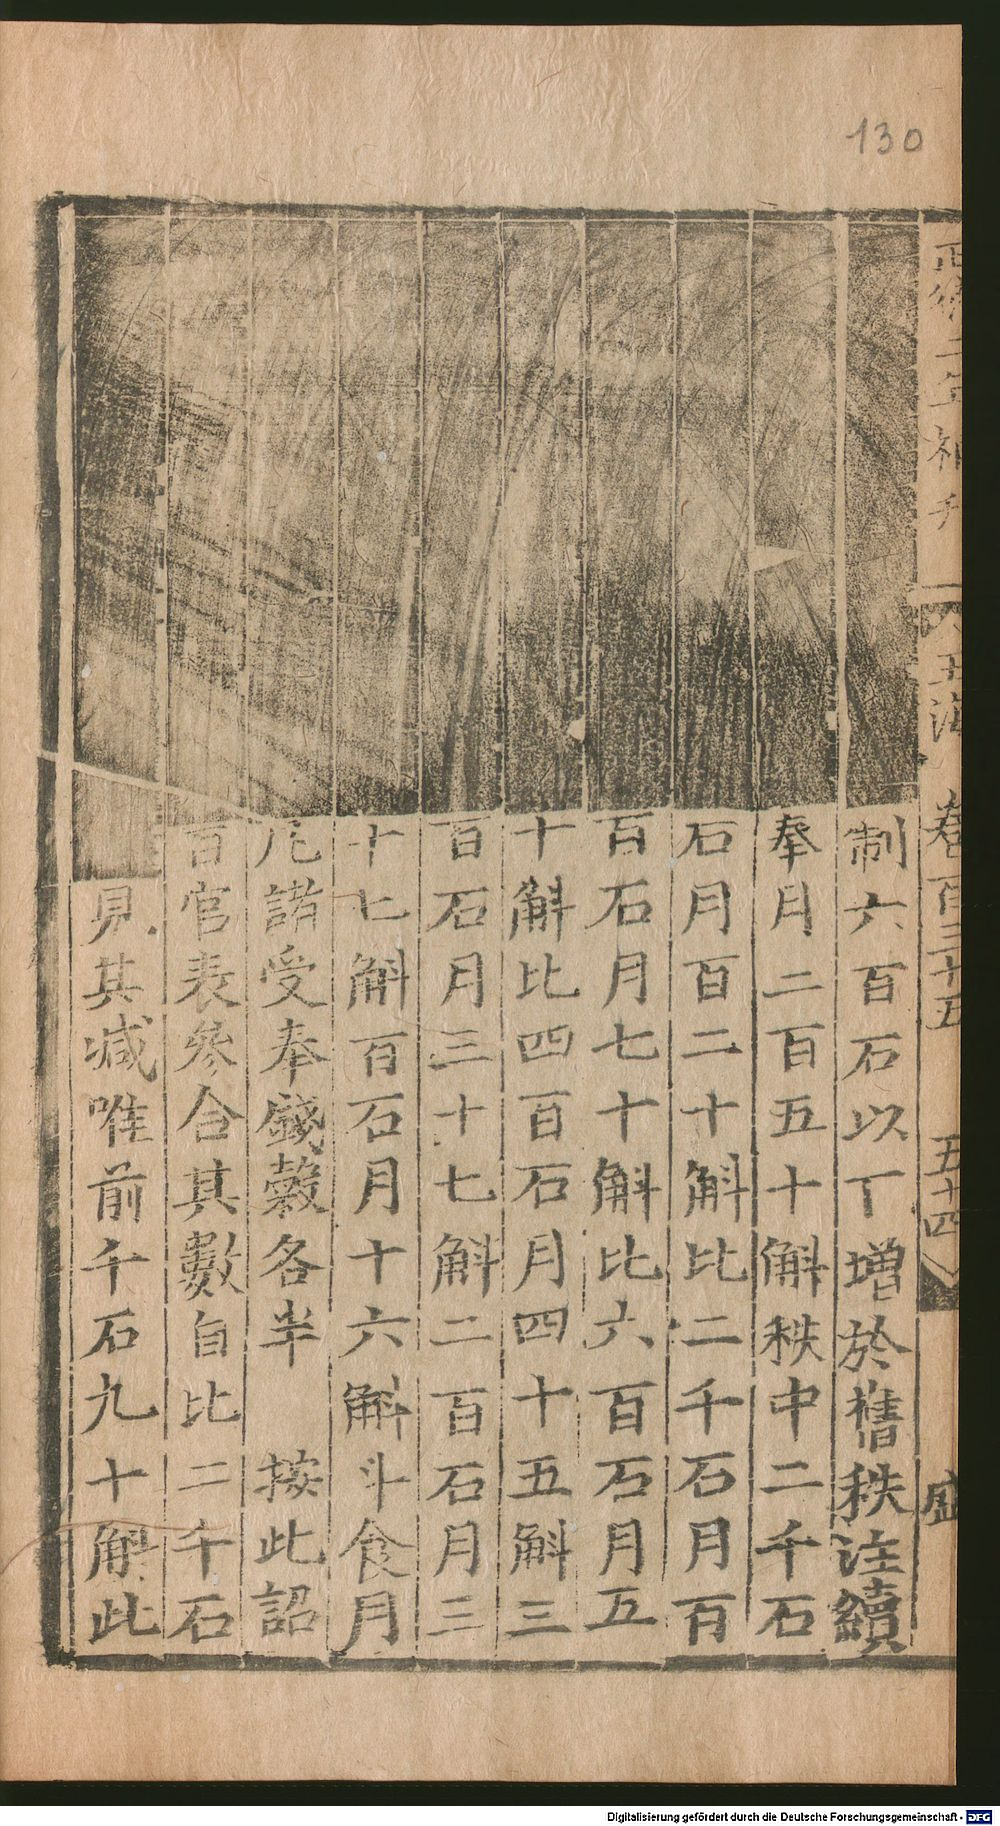 130
正德二年補刊
玉海
卷百三十五
五十四
盛
制六百石以丁增於舊秩注續
奉月二百五十斛秩中二千石
石月百二十斛比二千石月百
百石月七十斛比六百石月五
十斛比四百石月四十五斛三
百石月三十七斛二百石月三
十七斛百石月十六斛斗食月
凡諸受奉錢穀各半 按此詔
百官表參合其數自比二千石
見其減唯前千石九十斛此
Digitalisierung gefördert durch die Deutsche Forschungsgemeinschaft - DFG